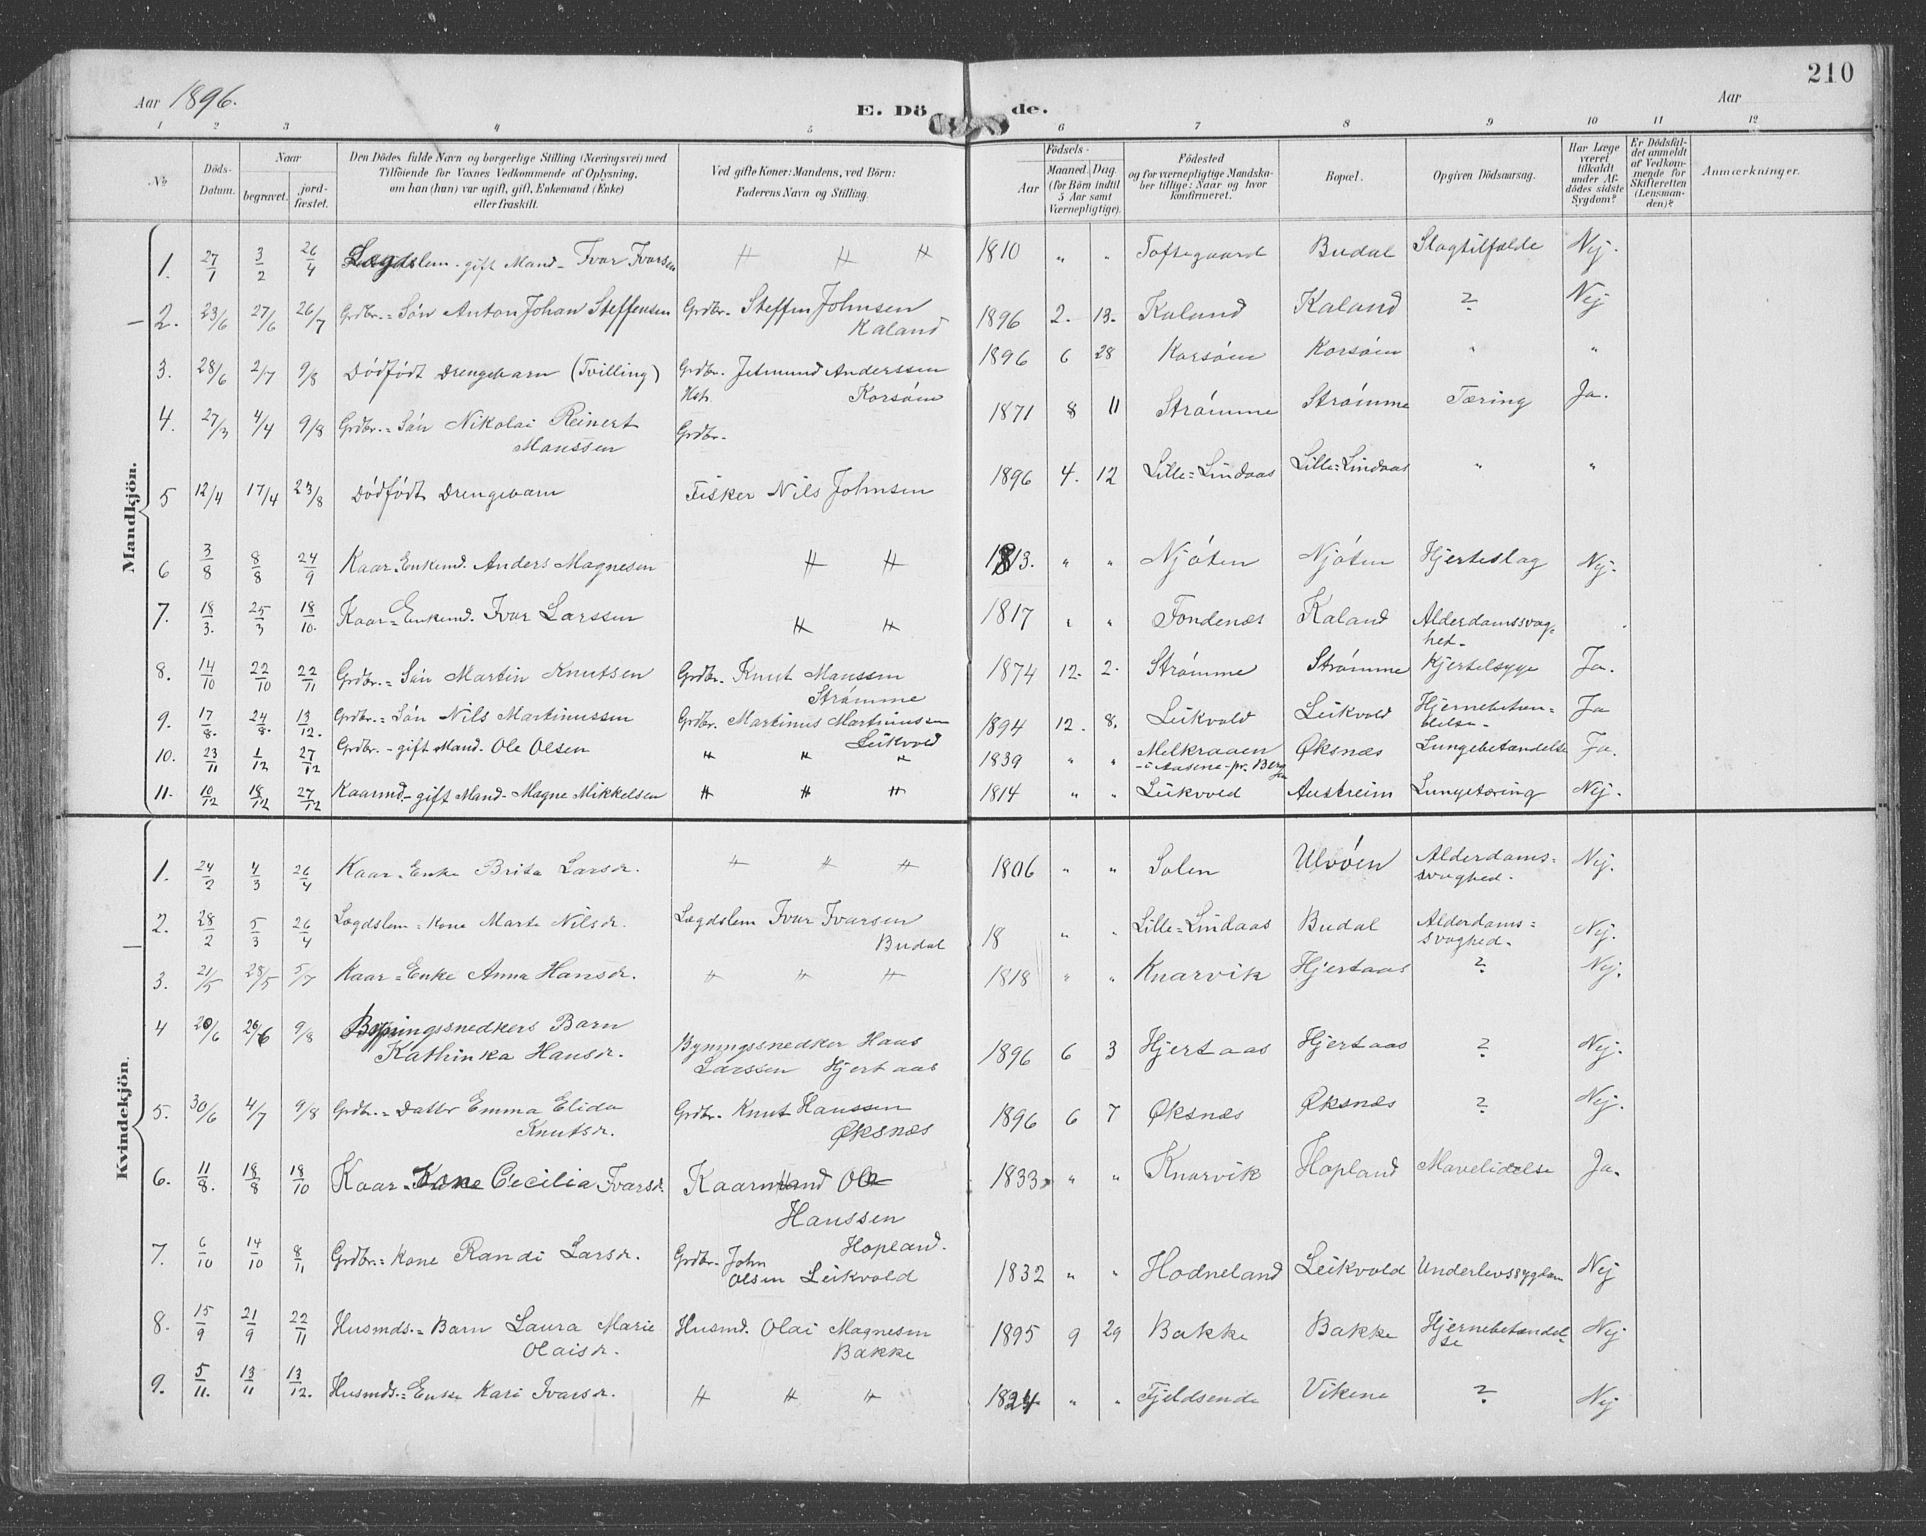 Aar 1896.
E. Döde.
210
Aar
1 2 3 4 5 6 7 8 9 10 11 12
No
Döds-Datum.
Naar
begravet.
jordfæstet.
Den Dödes fulde Navn og borgerlige Stilling (Næringsvei) med
Tilföiende for Voxnes Vedkommende af Oplysning,
om han (hun) var ugift, gift, Enkemand (Enke)
eller fraskilt.
Ved gifte Koner: Mandens, ved Börn:
Faderens Navn og Stilling.
Födsels-
Aar
Maaned. Dag.
(for Börn indtil
5 Aar samt
Værnepligtige).
Födested
og for værnepligtige Mandskaber tillige: Naar og hvor
konfirmeret.
Bopæl.
Opgiven Dödsaarsag.
Har Læge
været
tilkaldt
under Afdödes sidste
Sygdom?
Er Dödsfaldet anmeldt
af Vedkommende for
Skifteretten
(Lensmanden)?
Anmærkninger.
Mandkjön.
1. 27/1 3/2 26/4 Lægdslem - gift Mand - Ivar Ivarsen 〃 〃 〃 1810 〃 〃 Toftegaard Budal Slagtilfælde Nej.
2. 23/6 27/6 26/7 Grdbr. = Søn Anton Johan Steffensen Grdbr. Steffen Johnsen Kaland 1896 2. 13. Kaland Kaland ? Nej
3. 28/6 2/7 9/8 Dødfødt Drengebarn (Tvilling) Grdbr. Jetmund Anderssen Korsøen 1896 6 28 Korsøen Korsøen 〃 〃
4. 27/3 4/4 9/8 Grdbr. = Søn Nikolai Reinert Monssen Grdbr. 1871 8 11 Strømme Strømme Tæring Ja.
5 12/4 17/4 23/8 Dødfødt Drengebarn Fisker Nils Johnsen 1896 4. 12 Lille-Lindaas Lille-Lindaas 〃 〃
6 3/8 8/8 24/9 Kaar-Enkemd. Anders Magnesen 〃 〃 1813. 〃 〃 Njøten Njøten Hjerteslag Nej.
7. 18/3. 25/3 18/10. Kaar-Enkemd. Ivar Larssen 〃 〃 1817 〃 〃 Fondenæs Kaland Alderdamssvaghet.
8. 14/10 22/10 22/11 Grdbr. = Søn Martin Knutsen Grdbr. Knut Monssen Strømme 1874 12. 2. Strømme Strømme Kjertelsyge Ja.
9. 17/8. 24/8. 13/12. Grdbr. = Søn Nils Martinussen Grdbr. Martinus Martinussen Leikvold 1894 12. 8. Leikvold Leikvold Hjernebetændelse. Ja
10. 23/11 1/12 27/12 Grdbr. - gift Mand. Ole Olsen 〃 〃 〃 1839 〃 〃 Melkraaen - i Aasene - pr. Bergen Øksnæs Lungebetændelse Ja.
11. 10/12 18/12 27/12 Kaarmd. - gift Mand - Magne Mikkelsen 〃 〃 〃 1814 〃 〃 Leikvold Austreim Lungetæring Nej.
Kvindekjön
1. 24/2 4/3 26/4 Kaar-Enke Brita Larsdr. 〃 〃 〃 1806 〃 〃 Solen Ulvøen Alderdamssvaghed. Nej.
2. 28/2 5/3 26/4 Lægdslem = Kone Marte Nilsdr. Lægdslem Ivar Ivarsen Budal 18 〃 〃 Lille-Lindaas Budal Alderdamssvaghed. Nej.
3. 21/5 28/5 5/7 Kaar = Enke Anna Hansdr. 〃 〃 〃 1818 〃 〃 Knarvik Hjertaas ? Nej.
4 20/6 26/6 9/8 Bygningssnedkers Barn Kathinka Hansdr. Bygningssnedker Hans Larssen Hjertaas 1896 6 3 Hjertaas Hjertaas ? Nej.
5. 30/6 4/7 9/8 Grdbr. = Datter Emma Elida Knutsdr. Grdbr. Knut Hanssen Øksnæs 1896 6 7 Øksnæs Øksnæs ? Nej.
6. 11/8. 18/8 18/10 Kaar-Kone Cecilia Ivarsdr. Kaarmand Ole Hanssen Hopland. 1833 〃 〃 Knarvik Hopland Mavelidelse Ja.
7. 6/10 14/10 8/11 Grdbr. = Kone Randi Larsdr. Grdbr. John Olsen Leikvold 1832 〃 〃 Hodneland Leikvold Underlivssygdom Nej
8. 15/9 21/9 22/11 Husmds. = Barn Laura Marie Olaisdr. Husmd. Olai Magnesen Bakke 1895 9 29 Bakke Bakke Hjernebetændelse Nej
9. 5/11. 13/11 13/12. Husmds. = Enke Kari Ivarsdr. 〃 〃 〃 1824 〃 〃 Fjeldsende Vikene ? Nej